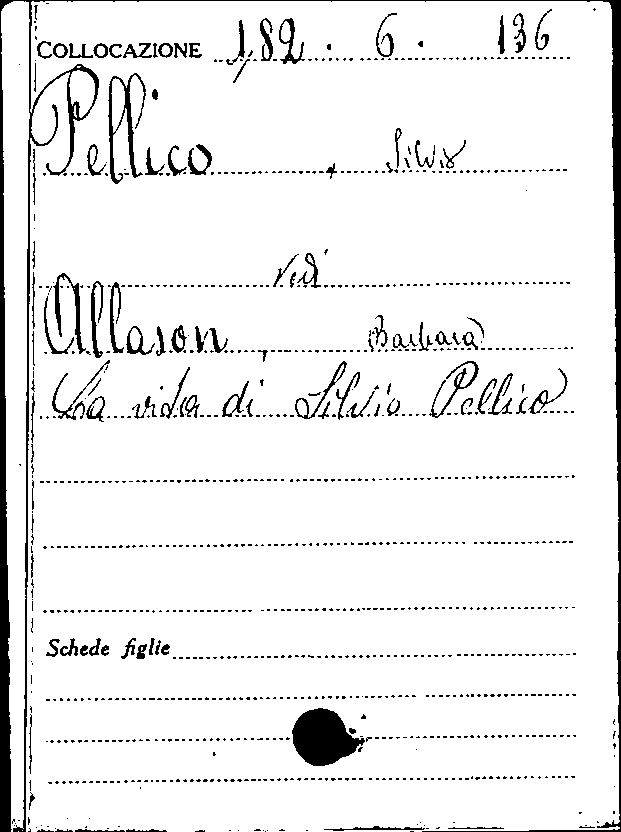 COLLOCAZIONE 182 . 6 . 136
Pellico , Silvio
Vedi
Allason , Barbara
La vita di Silvio Pellico
Schede figlie